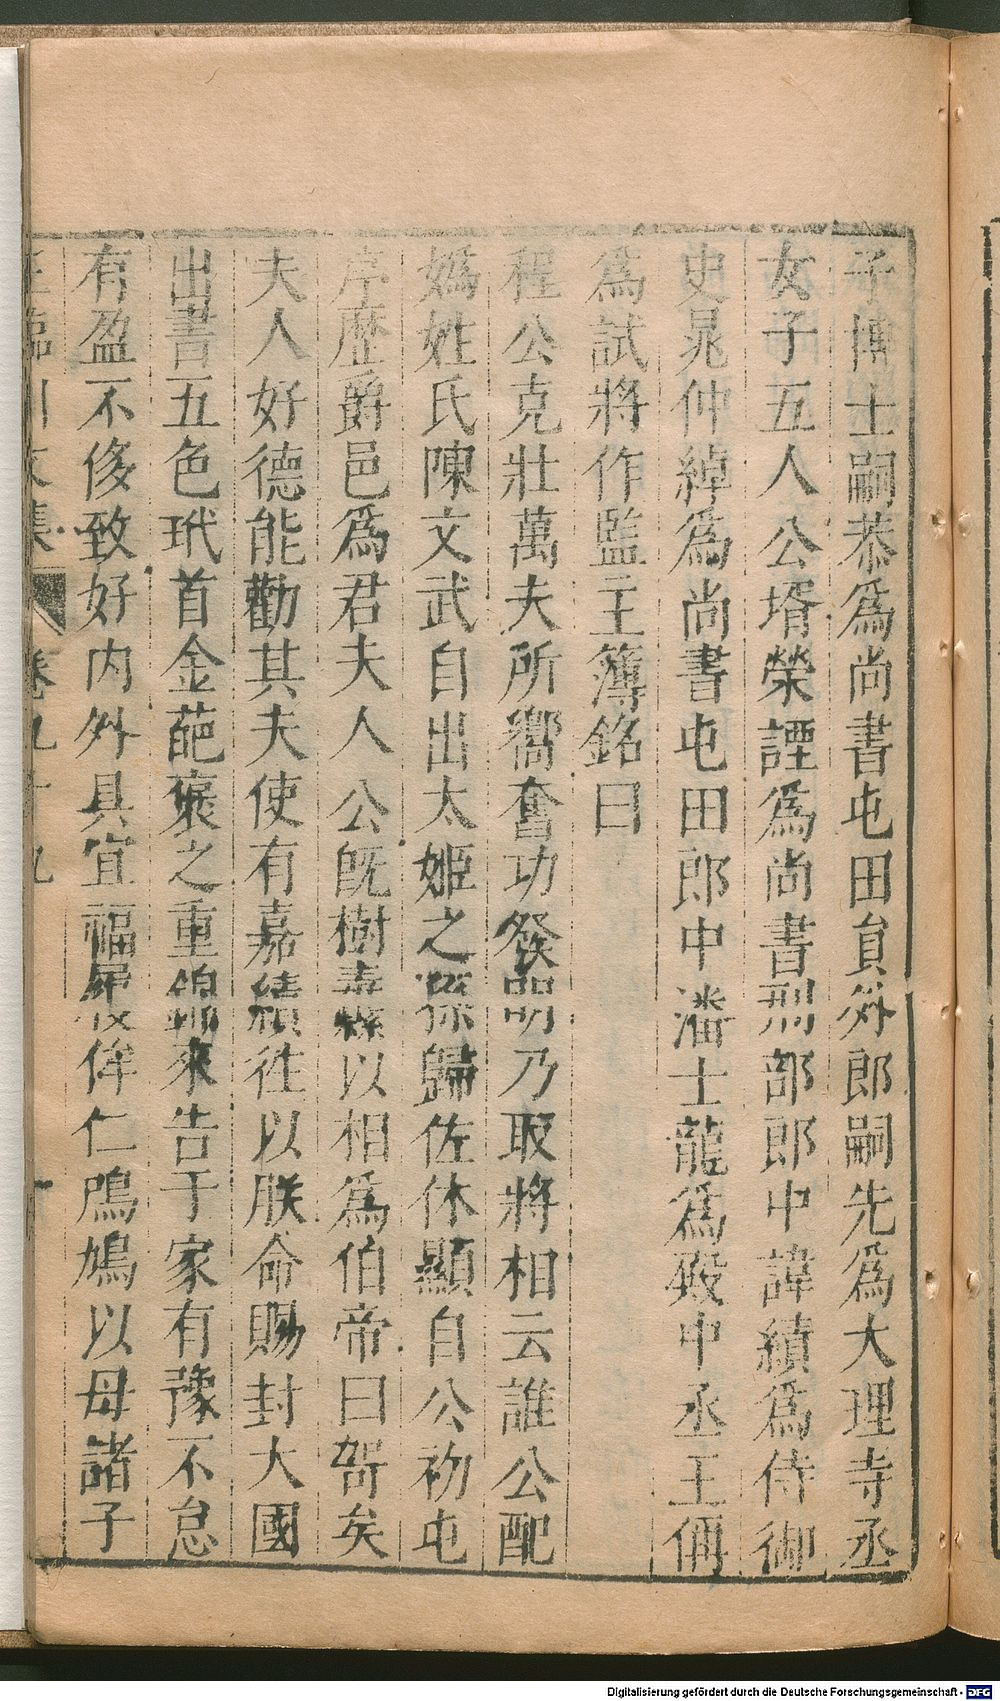 子博士嗣恭爲尚書屯田員外郎嗣先爲大理寺丞
女子五人公壻榮諲爲尚書刑部郎中諱績爲侍御
史晁仲綽爲尚書屯田郎中潘士龍爲殿中丞王偁
爲試將作監主簿銘曰
程公克壯萬夫所嚮奮功發明乃取將相云誰公配
媯姓氏陳文武自出太姬之孫歸佐休顯自公初屯
序歷爵邑爲君夫人公旣樹纛以相爲伯帝曰咨矣
夫人好德能勸其夫使有嘉績徃以朕命賜封大國
出書五色玳首金葩褒之重錦來告于家有豫不怠
有盈不侈致好内外具宜福履侔仁鳲鳩以母諸子
王臨川文集 卷九十九 十
Digitalisierung gefördert durch die Deutsche Forschungsgemeinschaft - DFG